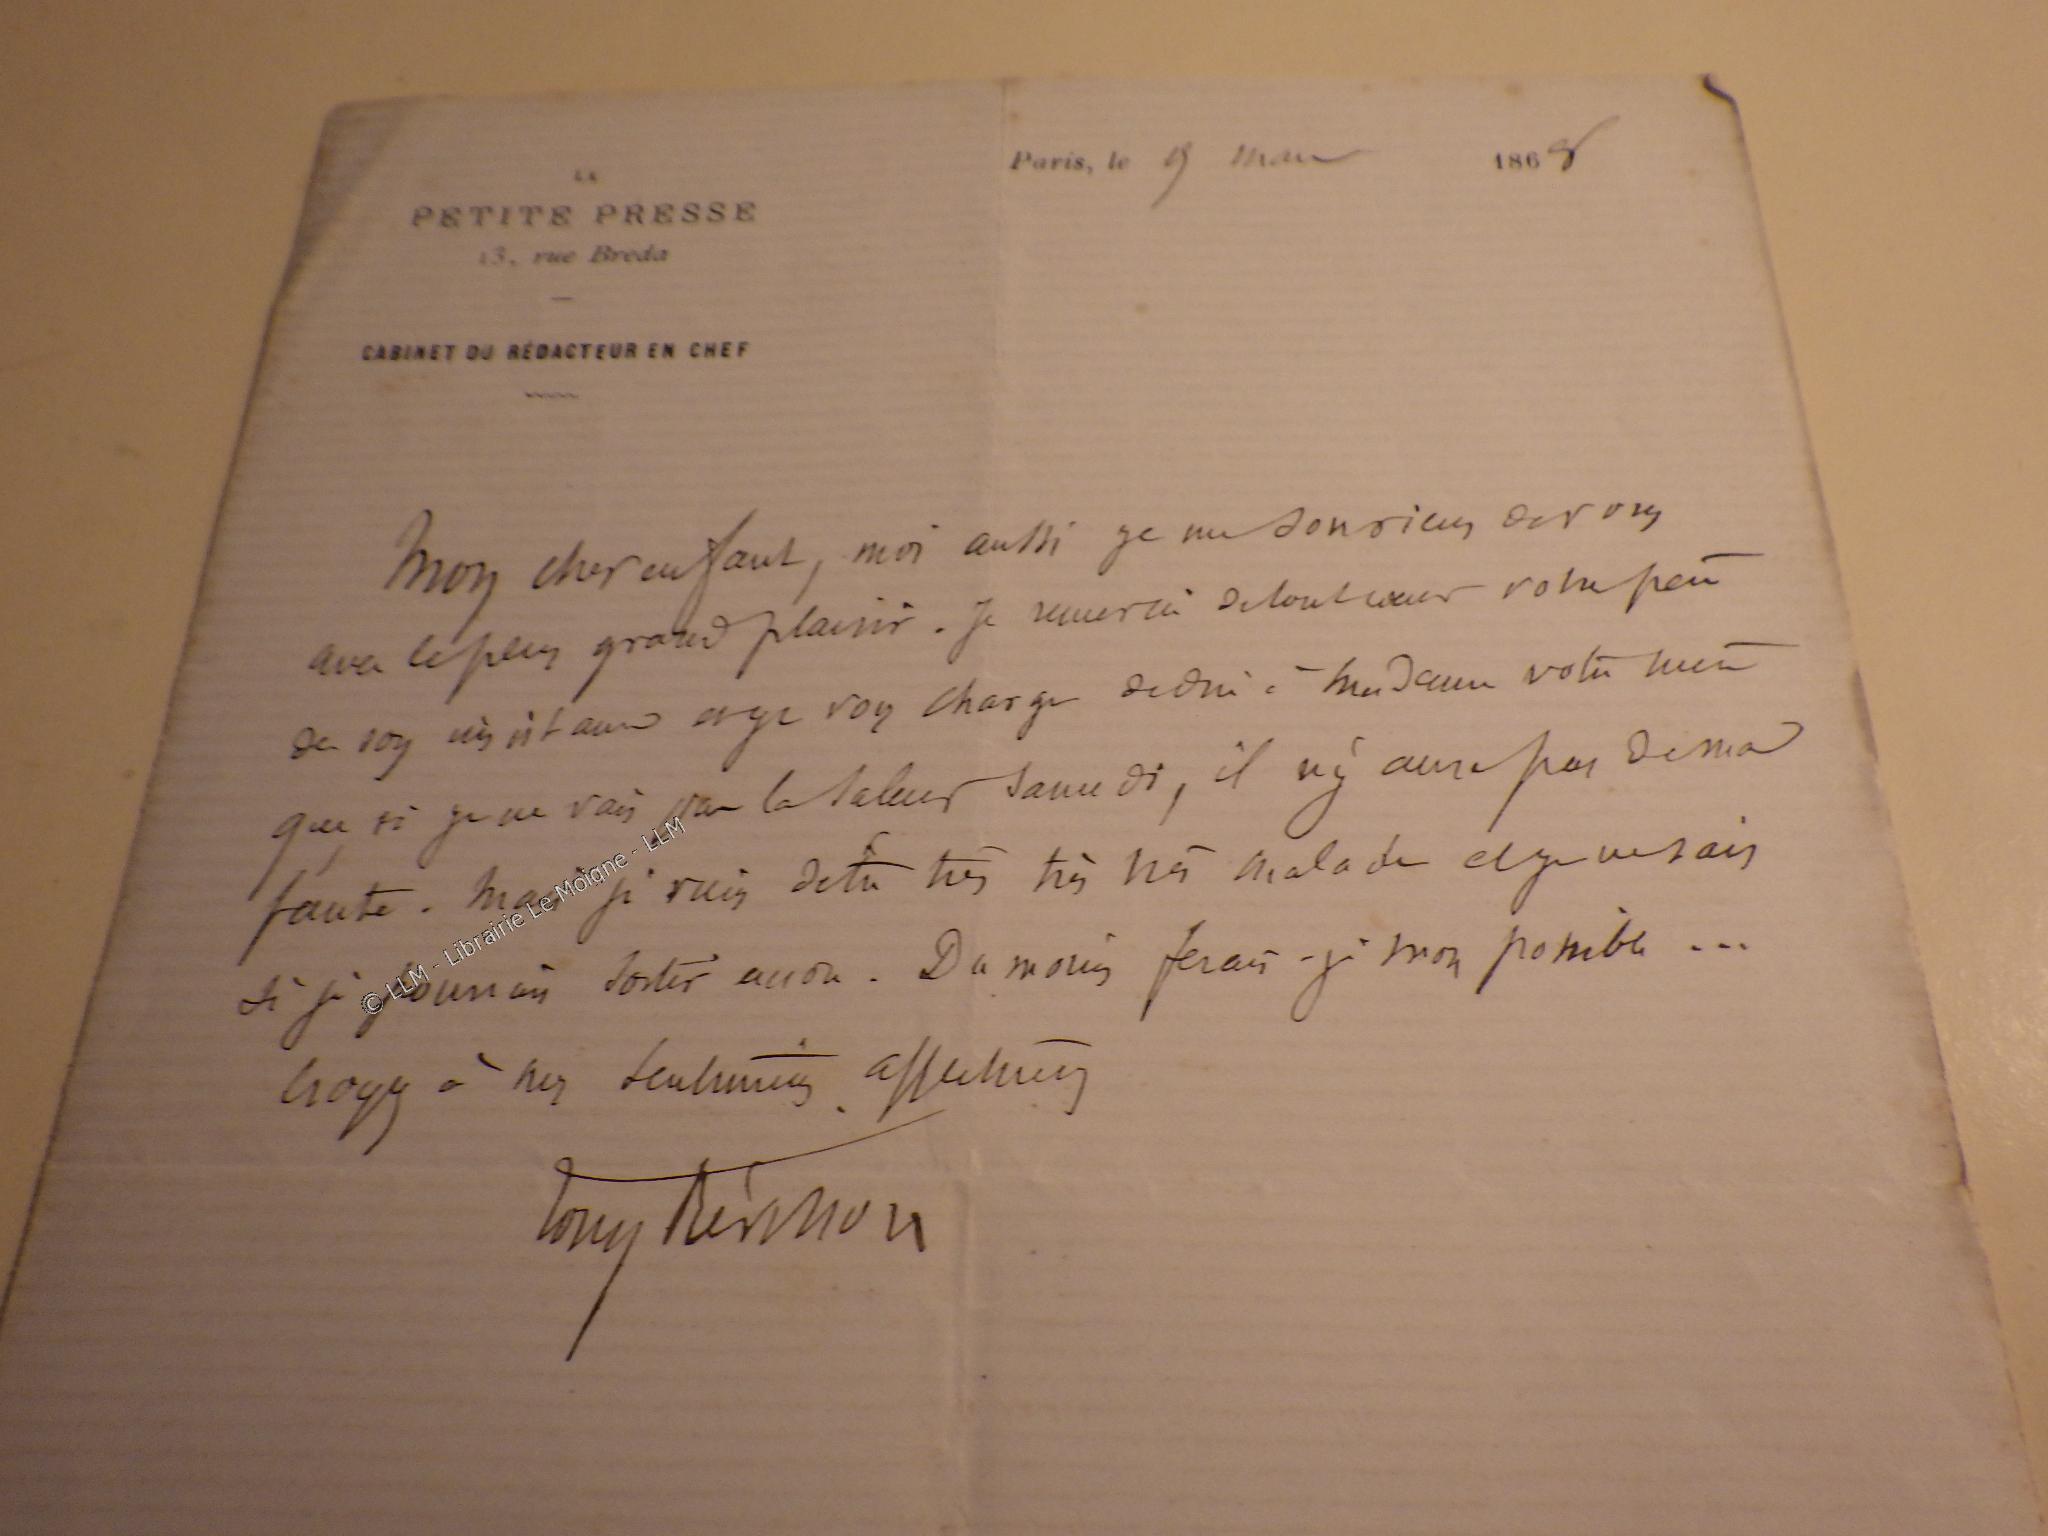 LA
PETITE PRESSE
13, rue Breda
CABINET DU RÉDACTEUR EN CHEF
Paris, le 19 mars 1868
Mon cher enfant, moi aussi je me souviens de vous
avec le plus grand plaisir. Je remercie de tout cœur votre père
de son invitation et je vous charge de dire à Madame votre mère
que si je ne vais pas la saluer samedi, il n'y aura pas de ma
faute. Mais je viens d'être très très très malade et je ne sais
si je pourrai sortir encore. Du moins ferai-je mon possible ...
Croyez à mes sentiments affectueux
Tony Révillon
© LLM - Librairie Le Moigne - LLM